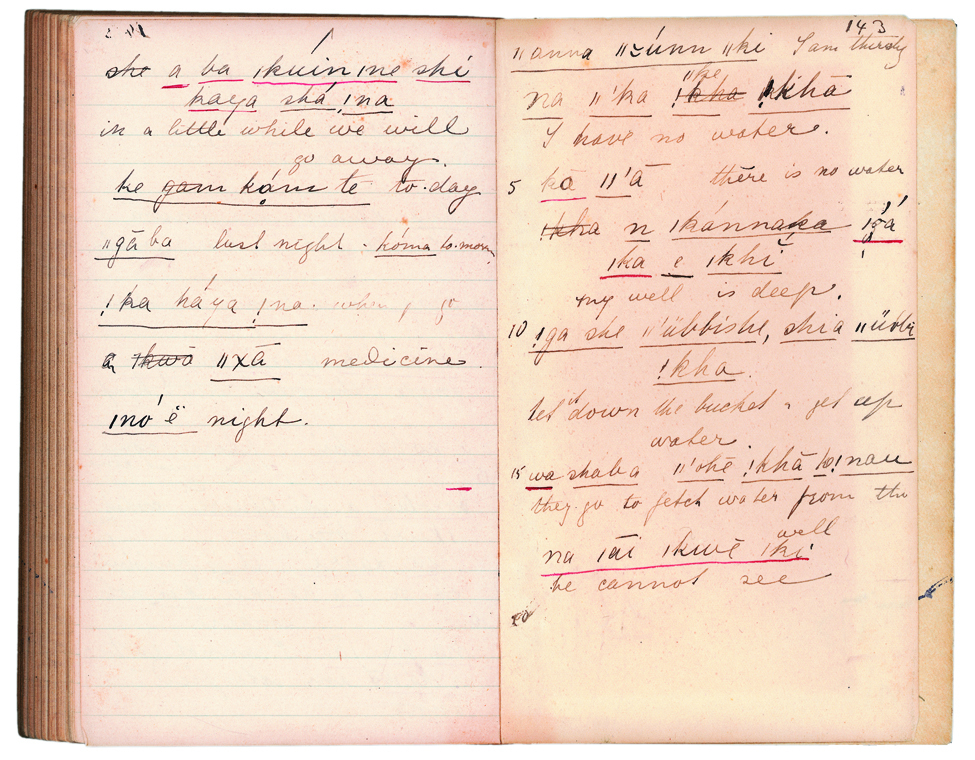 she a ba ǀkuín ǀne shi
kaya shá ǃna
in a little while we will
go away.
ke gam kạ́m te to-day
ǁgāba last night. kóma to-morn
ǃka háya ǃna. when I go
ǁxā medicine.
ǀnó' ë night.
143
ǁanna ǁzúnn ǁki I am thirsty
na ǁ'ka ǃkhā
I have no water.
5 kā ǁ'ā there is no water
n ǀkánnaka
ǀka e ǀkhi
my well is deep.
10 ǃga she ǁ'übbishe, shia
ǃkha.
let it down the bucket & get up
water.
15 wa shaba ǁ'ohë ǃkhā to ǃnau
they go to fetch water from the
well
na ǀāi ǀkwē ǀki
he cannot see
20